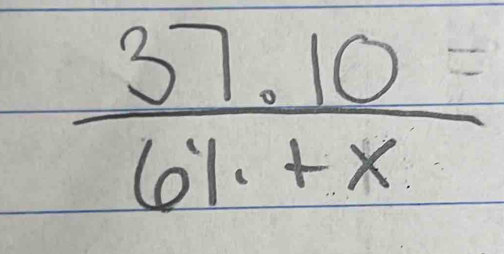 37.10 =
6% + x